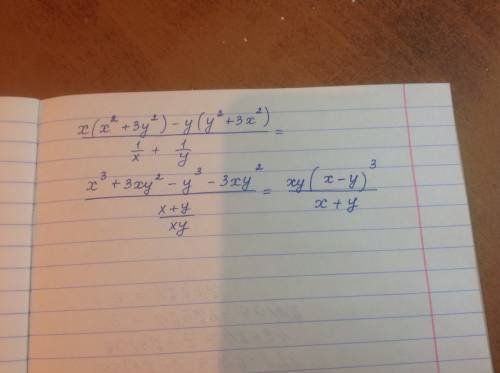 x(x² + 3y²) - y(y² + 3x²) / (1/x + 1/y) =
x³ + 3xy² - y³ - 3xy² / ((x + y)/xy) = xy(x - y)³ / (x + y)